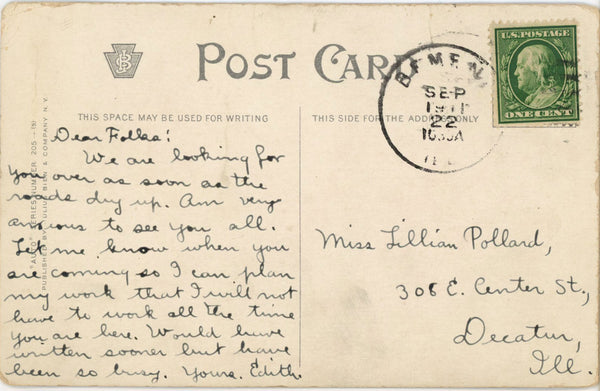 POST CARD
THIS SPACE MAY BE USED FOR WRITING
THIS SIDE FOR THE ADDRESS ONLY
BEMEN
SEP
22
1911
ILL
U.S. POSTAGE
ONE CENT
"AUTO" SERIES NUMBER 205
PUBLISHED BY JULIUS BIEN & COMPANY N.Y.
Dear Folks:
We are looking for
you over as soon as the
roads dry up. Am very
anxious to see you all.
Let me know when you
are coming so I can plan
my work that I will not
have to work all the time
you are here. Would have
written sooner but have
been so busy. Yours, Edith.
Miss Lillian Pollard,
306 E. Center St.,
Decatur,
Ill.